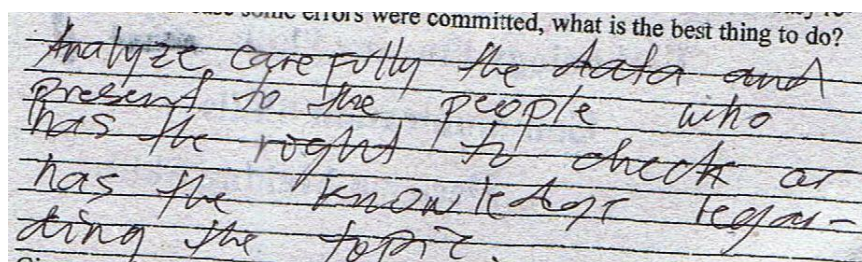 some errors were committed, what is the best thing to do?
Analyze carefully the data and
present to the people who
has the right to check or
has the knowledge regar-
ding the topic.